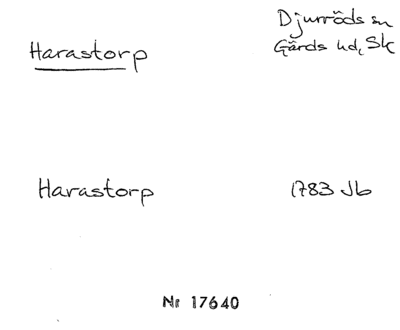 Harastorp
Djurröds sn
Gärds hd, Sk
Harastorp
1783 Jb
Nr 17640